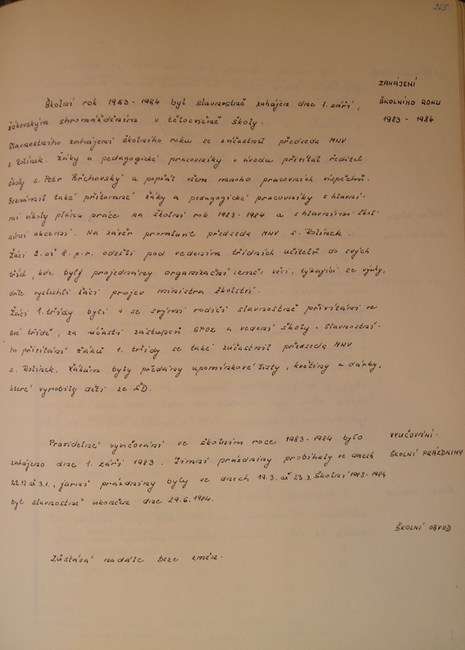 ZAHÁJENÍ
ŠKOLNÍHO ROKU
1983 - 1984
Školní rok 1983 - 1984 byl slavnostně zahájen dne 1. září,
žákovským shromážděním v tělocvičně školy.
Slavnostního zahájení školního roku se zúčastnil předseda MNV
s. Polínek. Žáky a pedagogické pracovníky v úvodu přivítal ředitel
školy s. Petr Břchovský a popřál všem mnoho pracovních úspěchů.
Seznámil také přítomné žáky a pedagogické pracovníky s hlavní-
mi úkoly plánu práce na školní rok 1983 - 1984 a s hlavními
akcemi. Na závěr promluvil předseda MNV s. Polínek.
Žáci 2. až 8. p.r. odešli pod vedením třídních učitelů do svých
tříd, kde byly projednány organizační věci, týkající se výuky,
dále vyslechli žáci projev ministra školství.
Žáci 1. třídy byli i se svými rodiči slavnostně přivítáni ve
své třídě, za účasti zástupců SPOZ a vedení školy. Slavnostní-
ho přivítání žáků 1. třídy se také zúčastnil předseda MNV
s. Polínek. Žákům byly předány upomínkové listy, květiny a dárky,
které vyrobily děti ze ŠD.
VYUČOVÁNÍ -
ŠKOLNÍ PRÁZDNINY
Pravidelné vyučování ve školním roce 1983 - 1984 bylo
zahájeno dne 1. září 1983. Zimní prázdniny probíhaly ve dnech
22.12 až 3.1., jarní prázdniny byly ve dnech 19.3. až 23.3. Školní 1983-1984
byl slavnostně ukončen dne 29.6.1984.
ŠKOLNÍ OBVOD
Zůstává nadále beze změn.